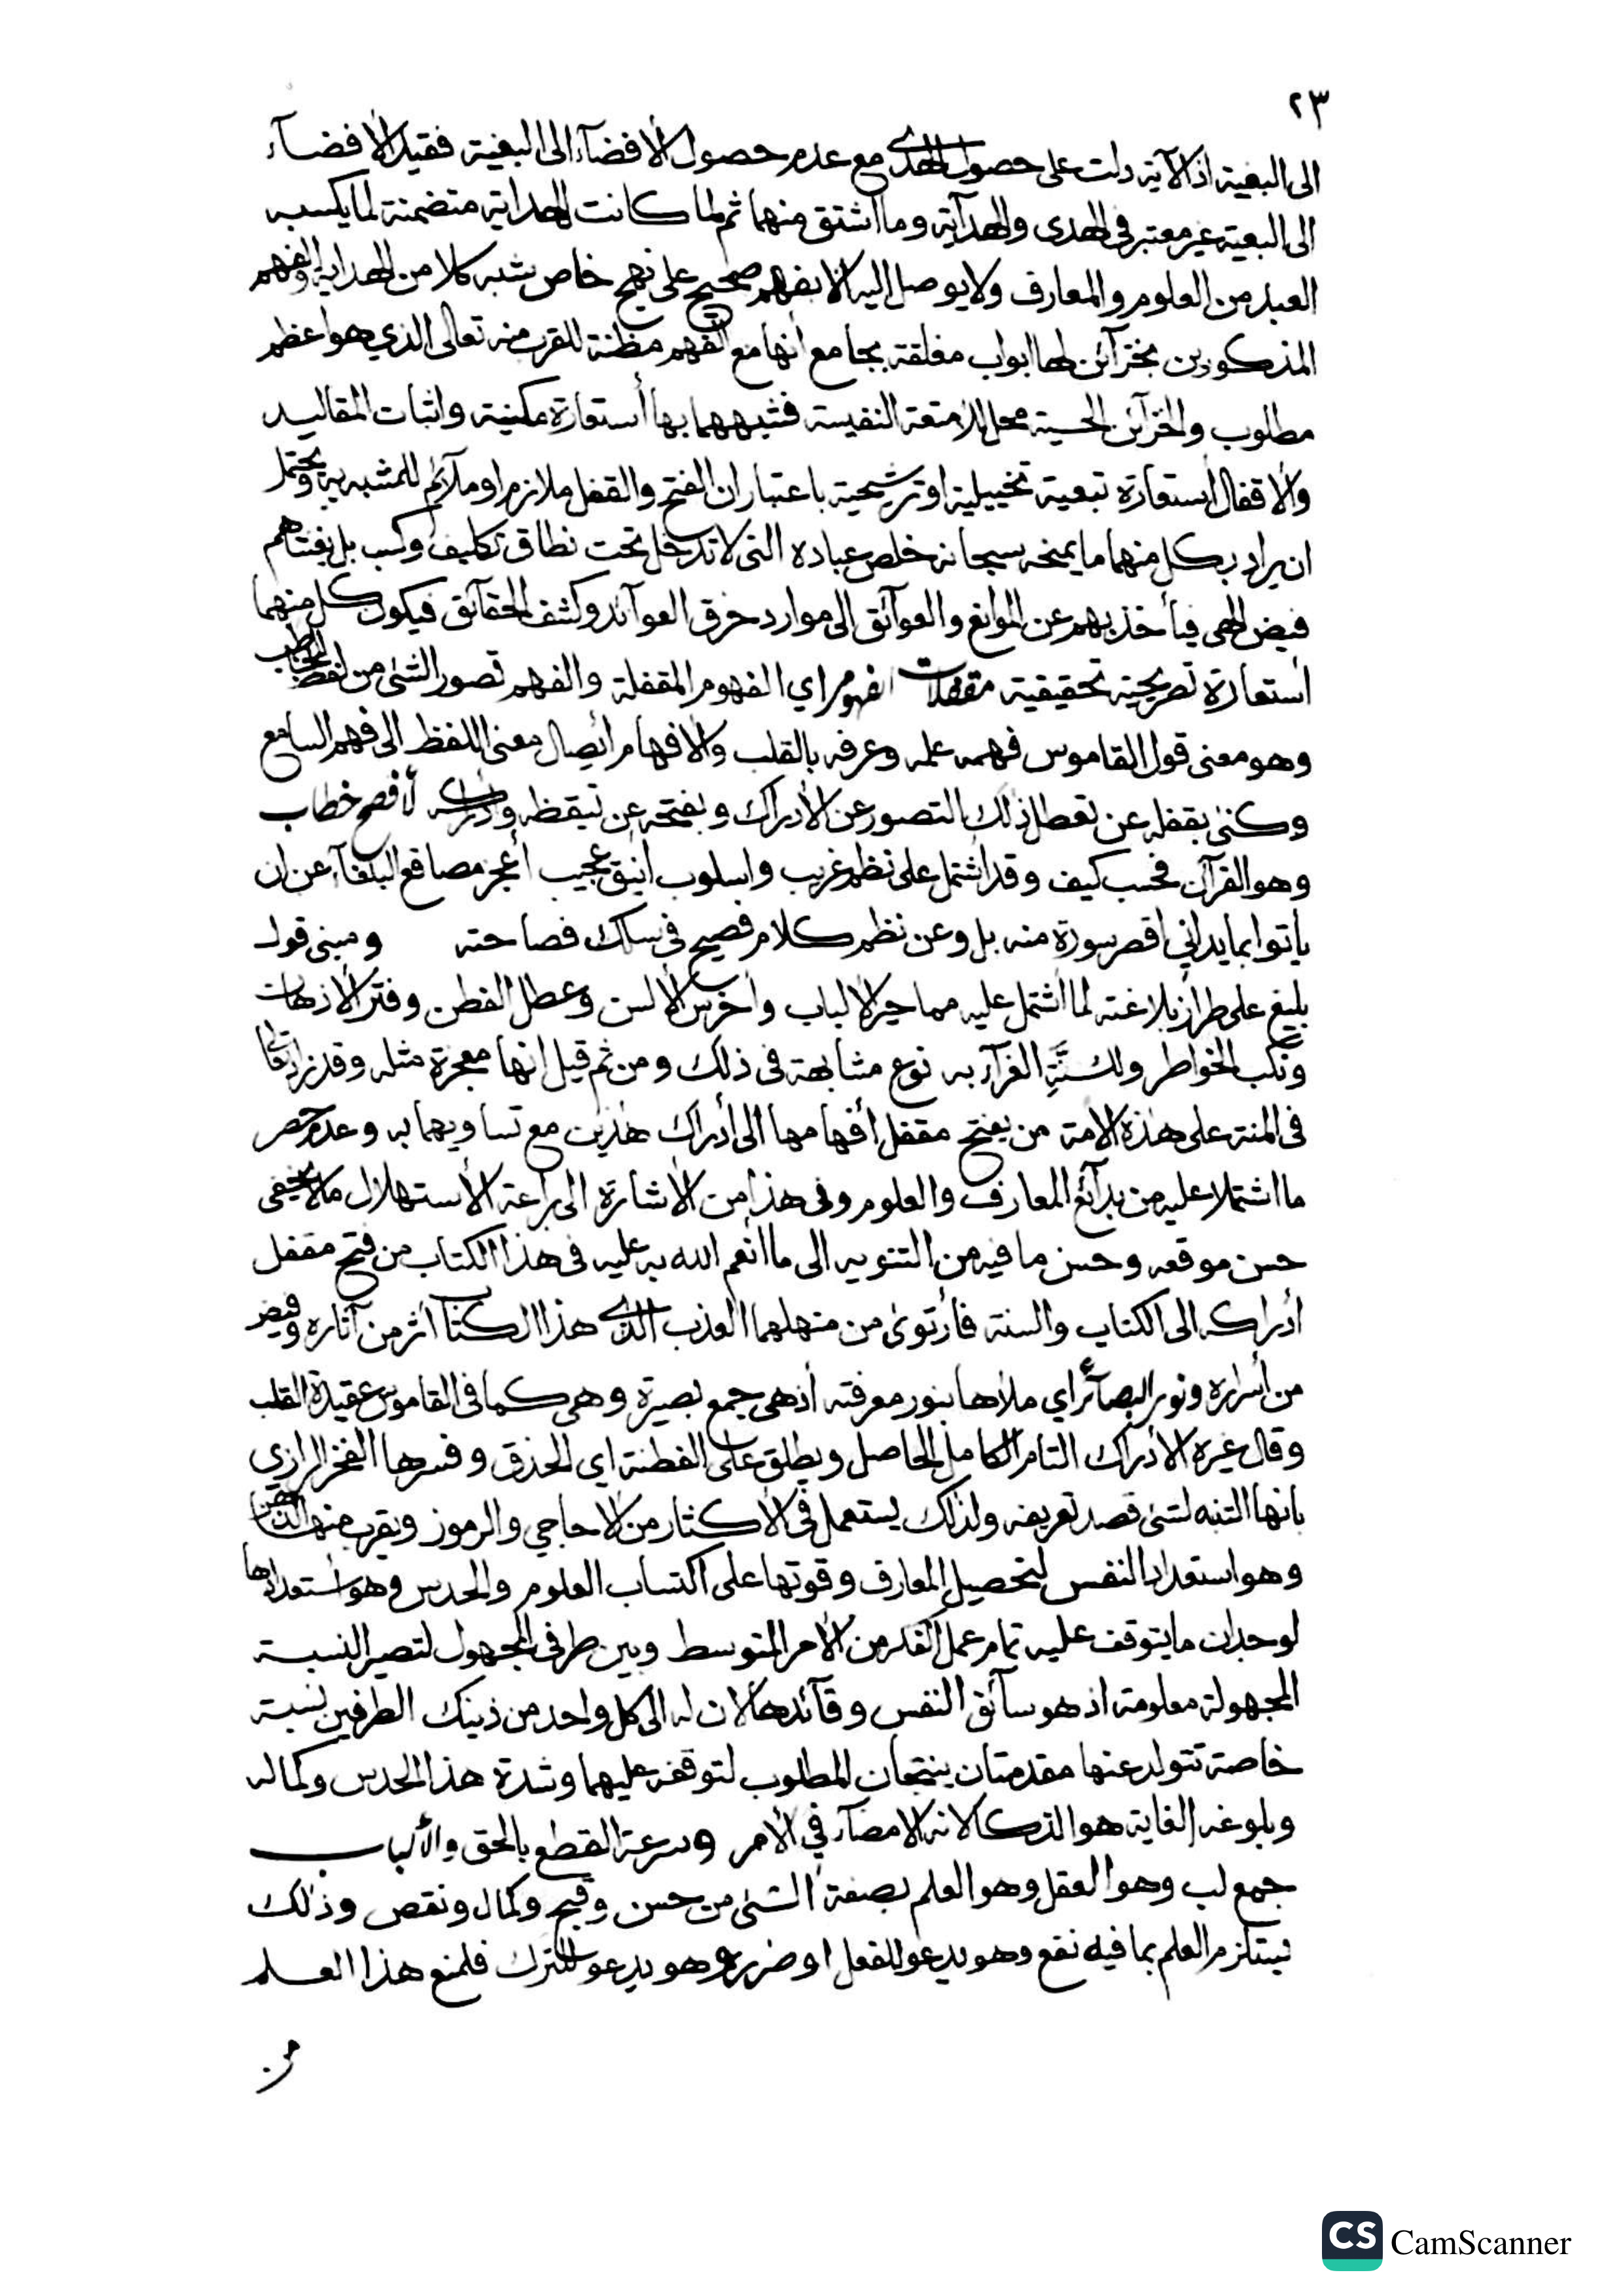 ٢٣
الى البغية اذ الآية دلت على حصول الهدى مع عدم حصول الأفضآء الى البغية فقيد الأفضآء
الى البغية غير معتبر في الهدى والهدآية وما اشتق منهما ثم لما كانت الهداية متضمنة لما يكسبه
العبد من العلوم والمعارف ولا يوصل اليه الا بفهم صحيح على نهج خاص شبه كلا من الهداية والفهم
المذكورين بخزآئن لها ابواب مغلقة بجامع أنها مع الفهم مظنة للقرب منه تعالى الذي هو اعظم
مطلوب والخزآئن الحسية محل للأمتعة النفيسة فشبههما بها أستعارة مكنية واثبات المقاليد
والاقفال أستعارة تبعية تخييلية او ترشيحية باعتبار ان الفتح والقفل ملازم او ملآئم للمشبه به ويحتمل
ان يراد بكل منهما ما يمنحه سبحانه خلص عباده التى لا تدخل تحت نطاق تكليف وكسب بل يفتاهم
فيض الهى فيأخذ بهم عن الموانع والعوآئق الى موارد خرق العوآئد وكشف الحقآئق فيكون كل منهما
أستعارة تصريحية تحقيقية مقفلات الفهوم اي الفهوم المقفلة والفهم تصور الشئ من لفظ المخاطب
وهو معنى قول القاموس فهمه علمه وعرفه بالقلب والافهام أيصال معنى اللفظ الى فهم السامع
وكنى بقفله عن تعطل ذلك التصور عن الأدراك وبفتحه عن تيقظه وأدراكه لأفصح خطاب
وهو القرآن فحسب كيف وقد اشتمل على نظم غريب واسلوب أنيق عجيب أعجز مصاقع البلغآء عن ان
ياتوا بما يداني اقصر سورة منه بل وعن نظم كلام فصيح في سلك فصاحته ومبنى قول
بليغ على طراز بلاغته لما اشتمل عليه مما حير الألباب وأخرس الألسن وعطل الفطن وفتر الأذهان
ونكب الخواطر ولسنة الغرآء به نوع مشابهة فى ذلك ومن ثم قيل انها معجزة مثله وقد زاد تعالى
فى المنة على هذه الامة من يفتح مقفل أفهامها الى أدراك هذين مع تساويهما به وعدم حصر
ما اشتملا عليه من بدآئع المعارف والعلوم وفى هذا من الأشارة الى براعة الأستهلال ما لا يخفى
حسن موقعه وحسن ما فيه من التنويه الى ما أنعم الله به عليه فى هذا الكتاب من فتح مقفل
أدراكه الى الكتاب والسنة فأرتوى من منهلهما العذب الذى هذا الكتاب أثر من آثاره وفيض
من أسراره ونور البصآئر اي ملأها بنور معرفته أذ هى جمع بصيرة وهى كما فى القاموس عقيدة القلب
وقال غيره الأدراك التام الكامل الحاصل ويطلق على الفطنة اي الحذق وفسرها الفخر الرازي
بانها التنبه لشئ قصد تعريفه ولذلك يستعمل فى الأكثار من الأحاجي والرموز ويقرب منها الذهن
وهو استعداد النفس لتحصيل المعارف وقوتها على اكتساب العلوم والحدس وهو أستعدادها
لوجدان ما يتوقف عليه تمام عمل الفكر من الأمر المتوسط وبين طرفى المجهول لتصير النسبة
المجهولة معلومة اذ هو سآئق النفس وقآئدها لان له الى كل واحد من ذينك الطرفين نسبة
خاصة تتولد عنها مقدمتان ينتجان المطلوب لتوقفه عليهما وشدة هذا الحدس وكماله
وبلوغه الغاية هو الذكا لانه الامضآء في الأمر وسرعة القطع بالحق والألباب
جمع لب وهو العقل وهو العلم بصفة الشئ من حسن وقبح وكمال ونقص وذلك
يستلزم العلم بما فيه نفع وهو يدعو للفعل او ضرر وهو يدعو للترك فلمنع هذا العلم
من
CS CamScanner